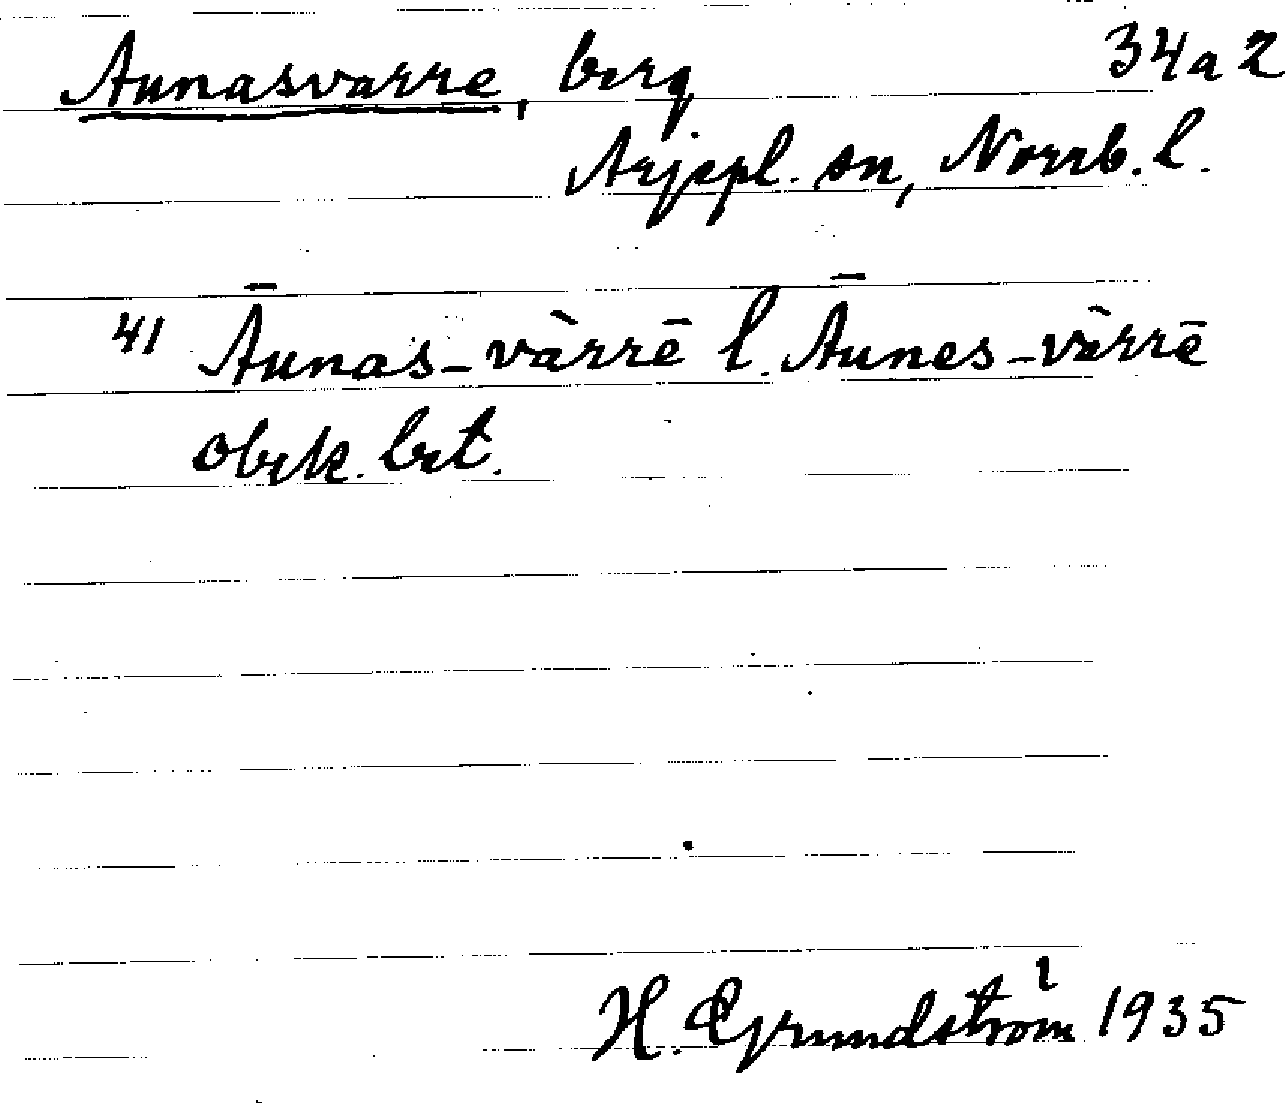 Aunasvarre, berg 34a2
Arjepl. sn, Norrb. l.
41 Āunas-và̄rrē l. Āunes-và̄rrē
obek. bet.
H. Grundström 1935